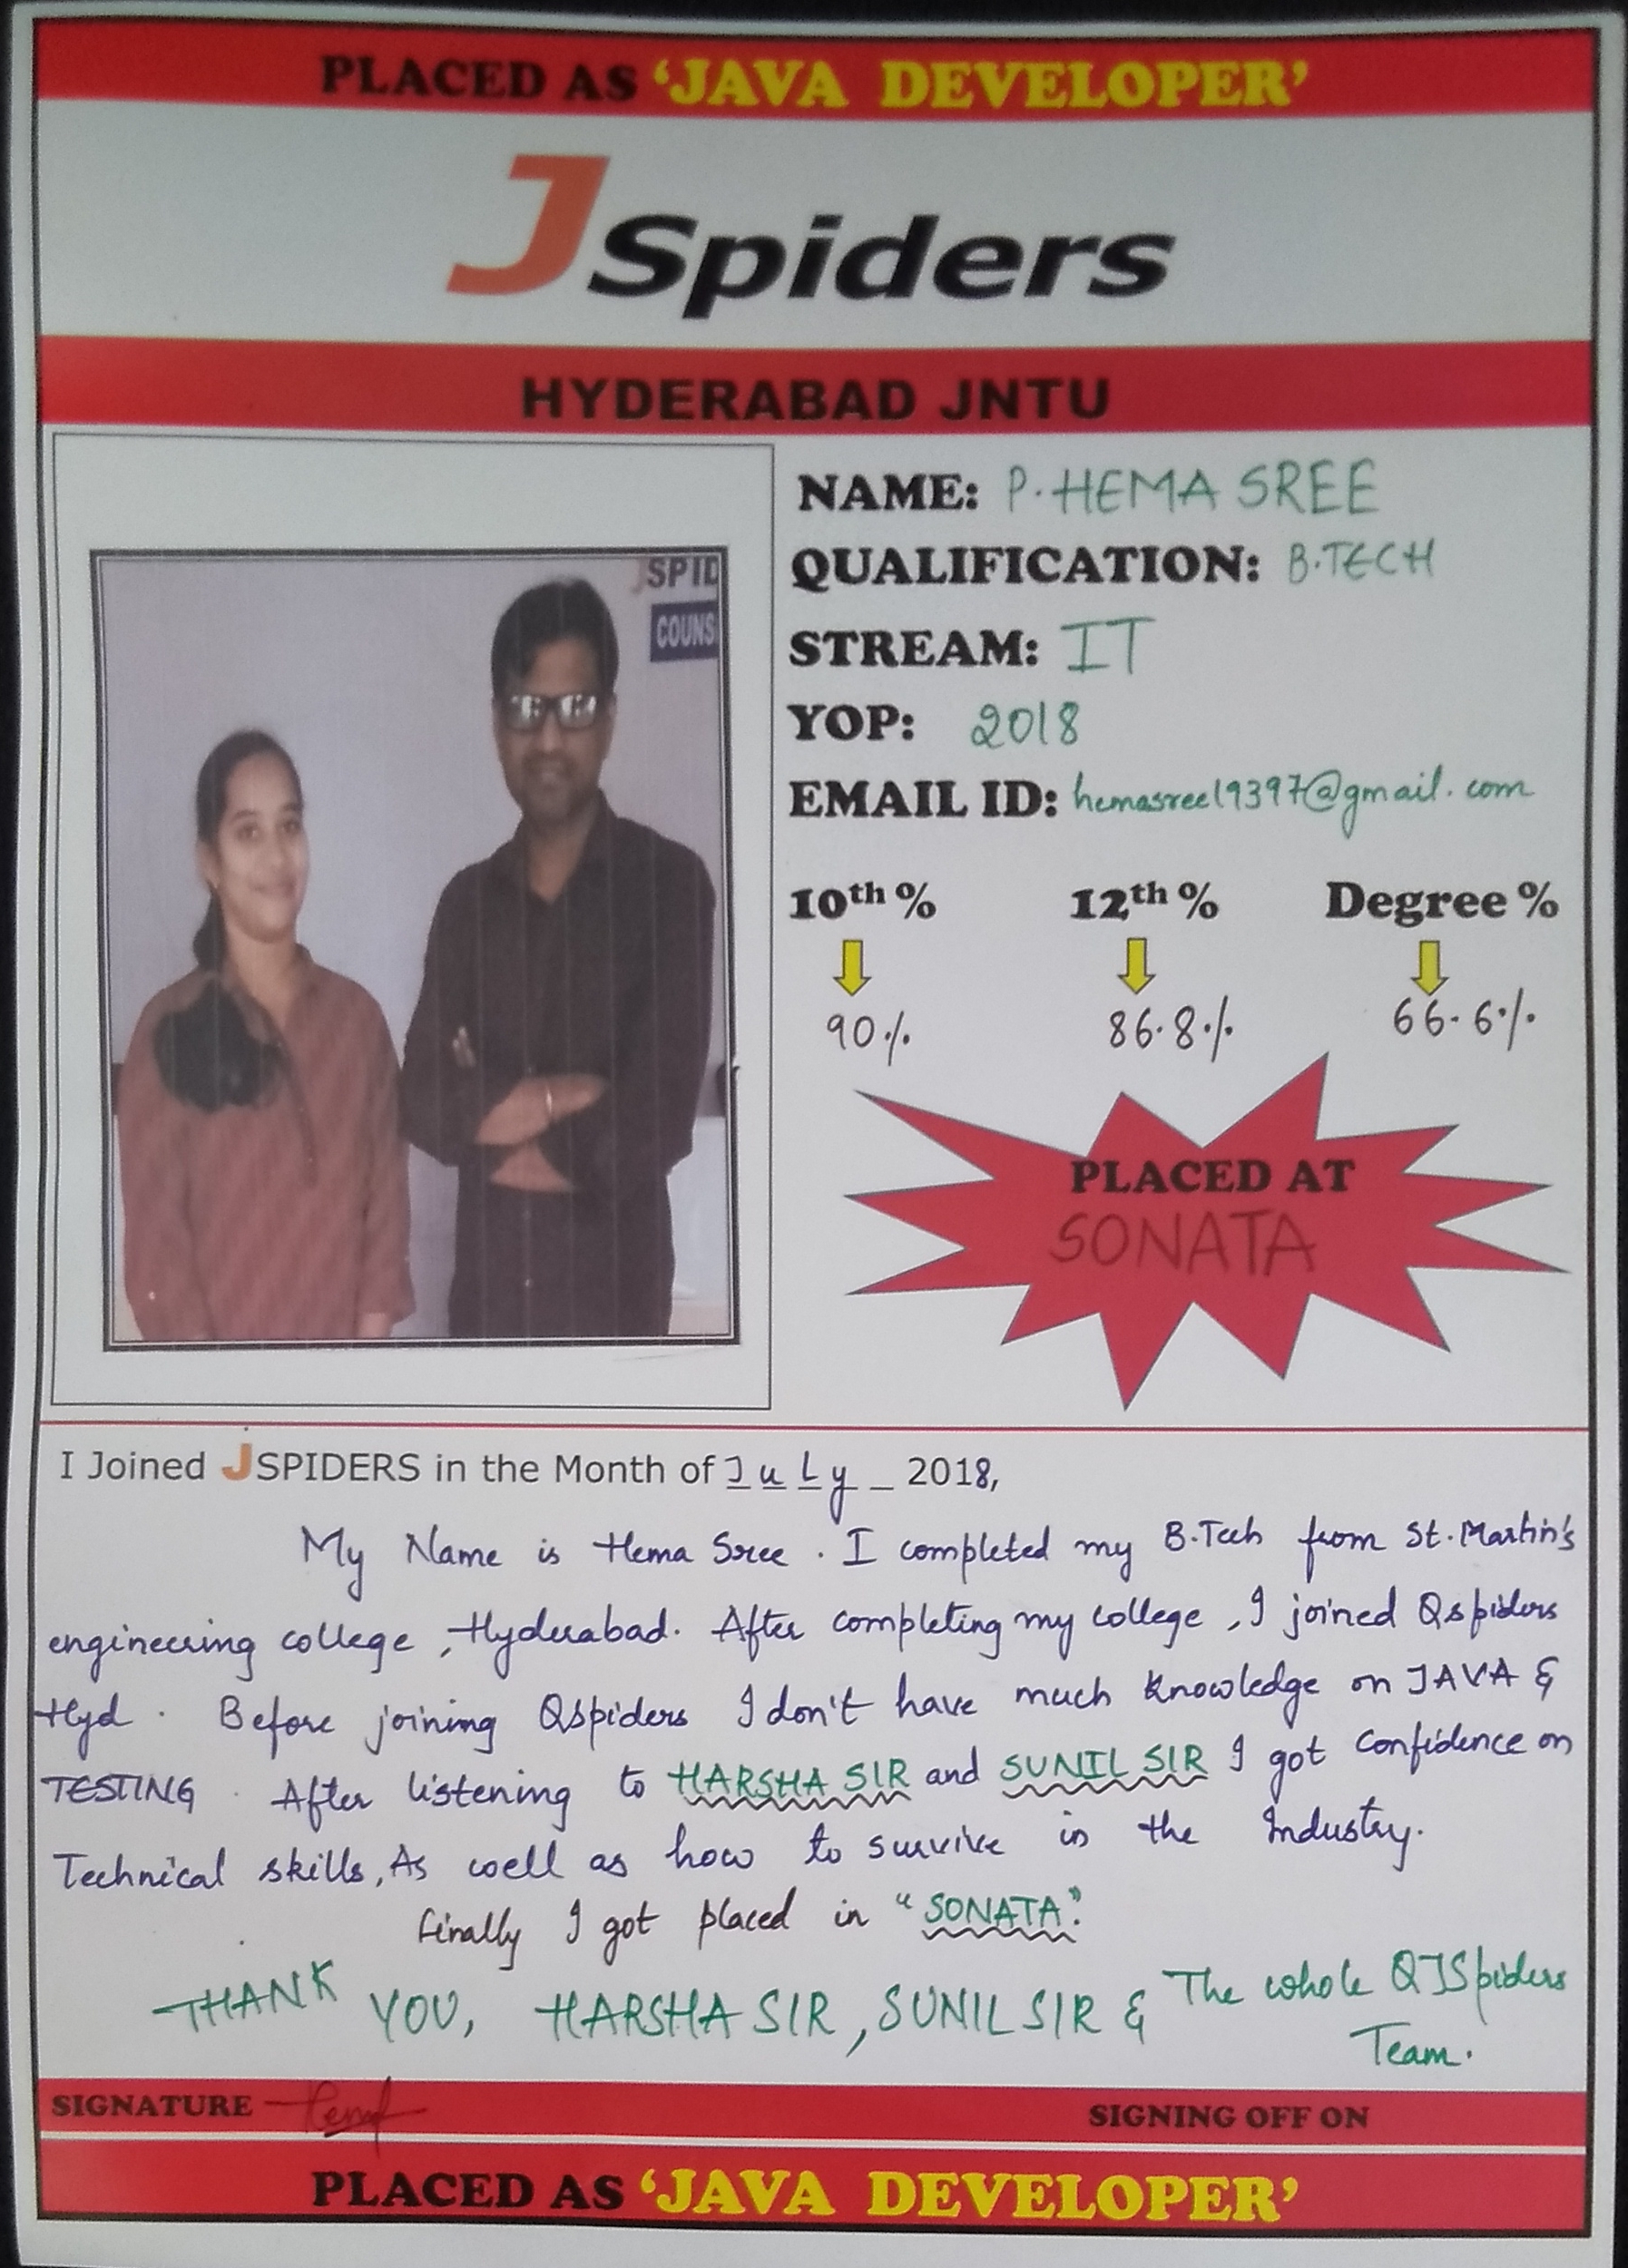 PLACED AS ‘JAVA DEVELOPER’
JSpiders
HYDERABAD JNTU
JSPID
COUNS
NAME: P. HEMA SREE
QUALIFICATION: B.TECH
STREAM: IT
YOP: 2018
EMAIL ID: hemasree19397@gmail.com
10th % 12th % Degree %
90% 86.8% 66.6%
PLACED AT
SONATA
I Joined JSPIDERS in the Month of JuLy _ 2018,
My Name is Hema Sree. I completed my B.Tech from St. Martin's
engineering college, Hyderabad. After completing my college, I joined Qspiders
Hyd. Before joining QSpiders I don't have much knowledge on JAVA &
TESTING. After listening to HARSHA SIR and SUNIL SIR I got confidence on
Technical skills, As well as how to survive in the Industry.
finally I got placed in "SONATA".
THANK YOU, HARSHA SIR, SUNIL SIR & The whole QJSpiders
Team.
SIGNATURE Hema SIGNING OFF ON
PLACED AS ‘JAVA DEVELOPER’